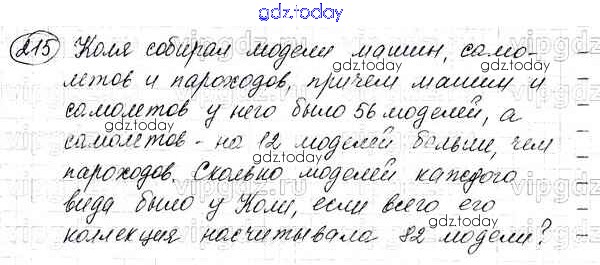 gdz.today
215 Коля собирал модели машин, само-
летов и пароходов, причем машин и
gdz.today
самолетов у него было 56 моделей, а
gdz.today
самолетов - на 12 моделей больше, чем
gdz.today
пароходов. Сколько моделей каждого
gdz.today
вида было у Коли, если всего его
gdz.today
коллекция насчитывала 82 модели?
gdz.today